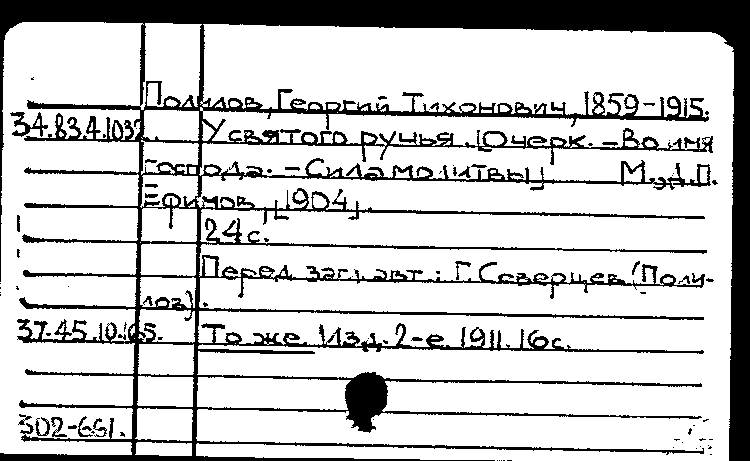 Полилов, Георгий Тихонович, 1859-1915.
34.83.4.1032. У святого ручья. [Очерк. - Во имя
господа. - Сила молитвы] М., Д.П.
Ефимов, [1904].
24 с.
Перед загл. авт.: Г. Северцев (Поли-
лов).
37.45.10.165. То же. Изд. 2-е. 1911. 16 с.
302-661.